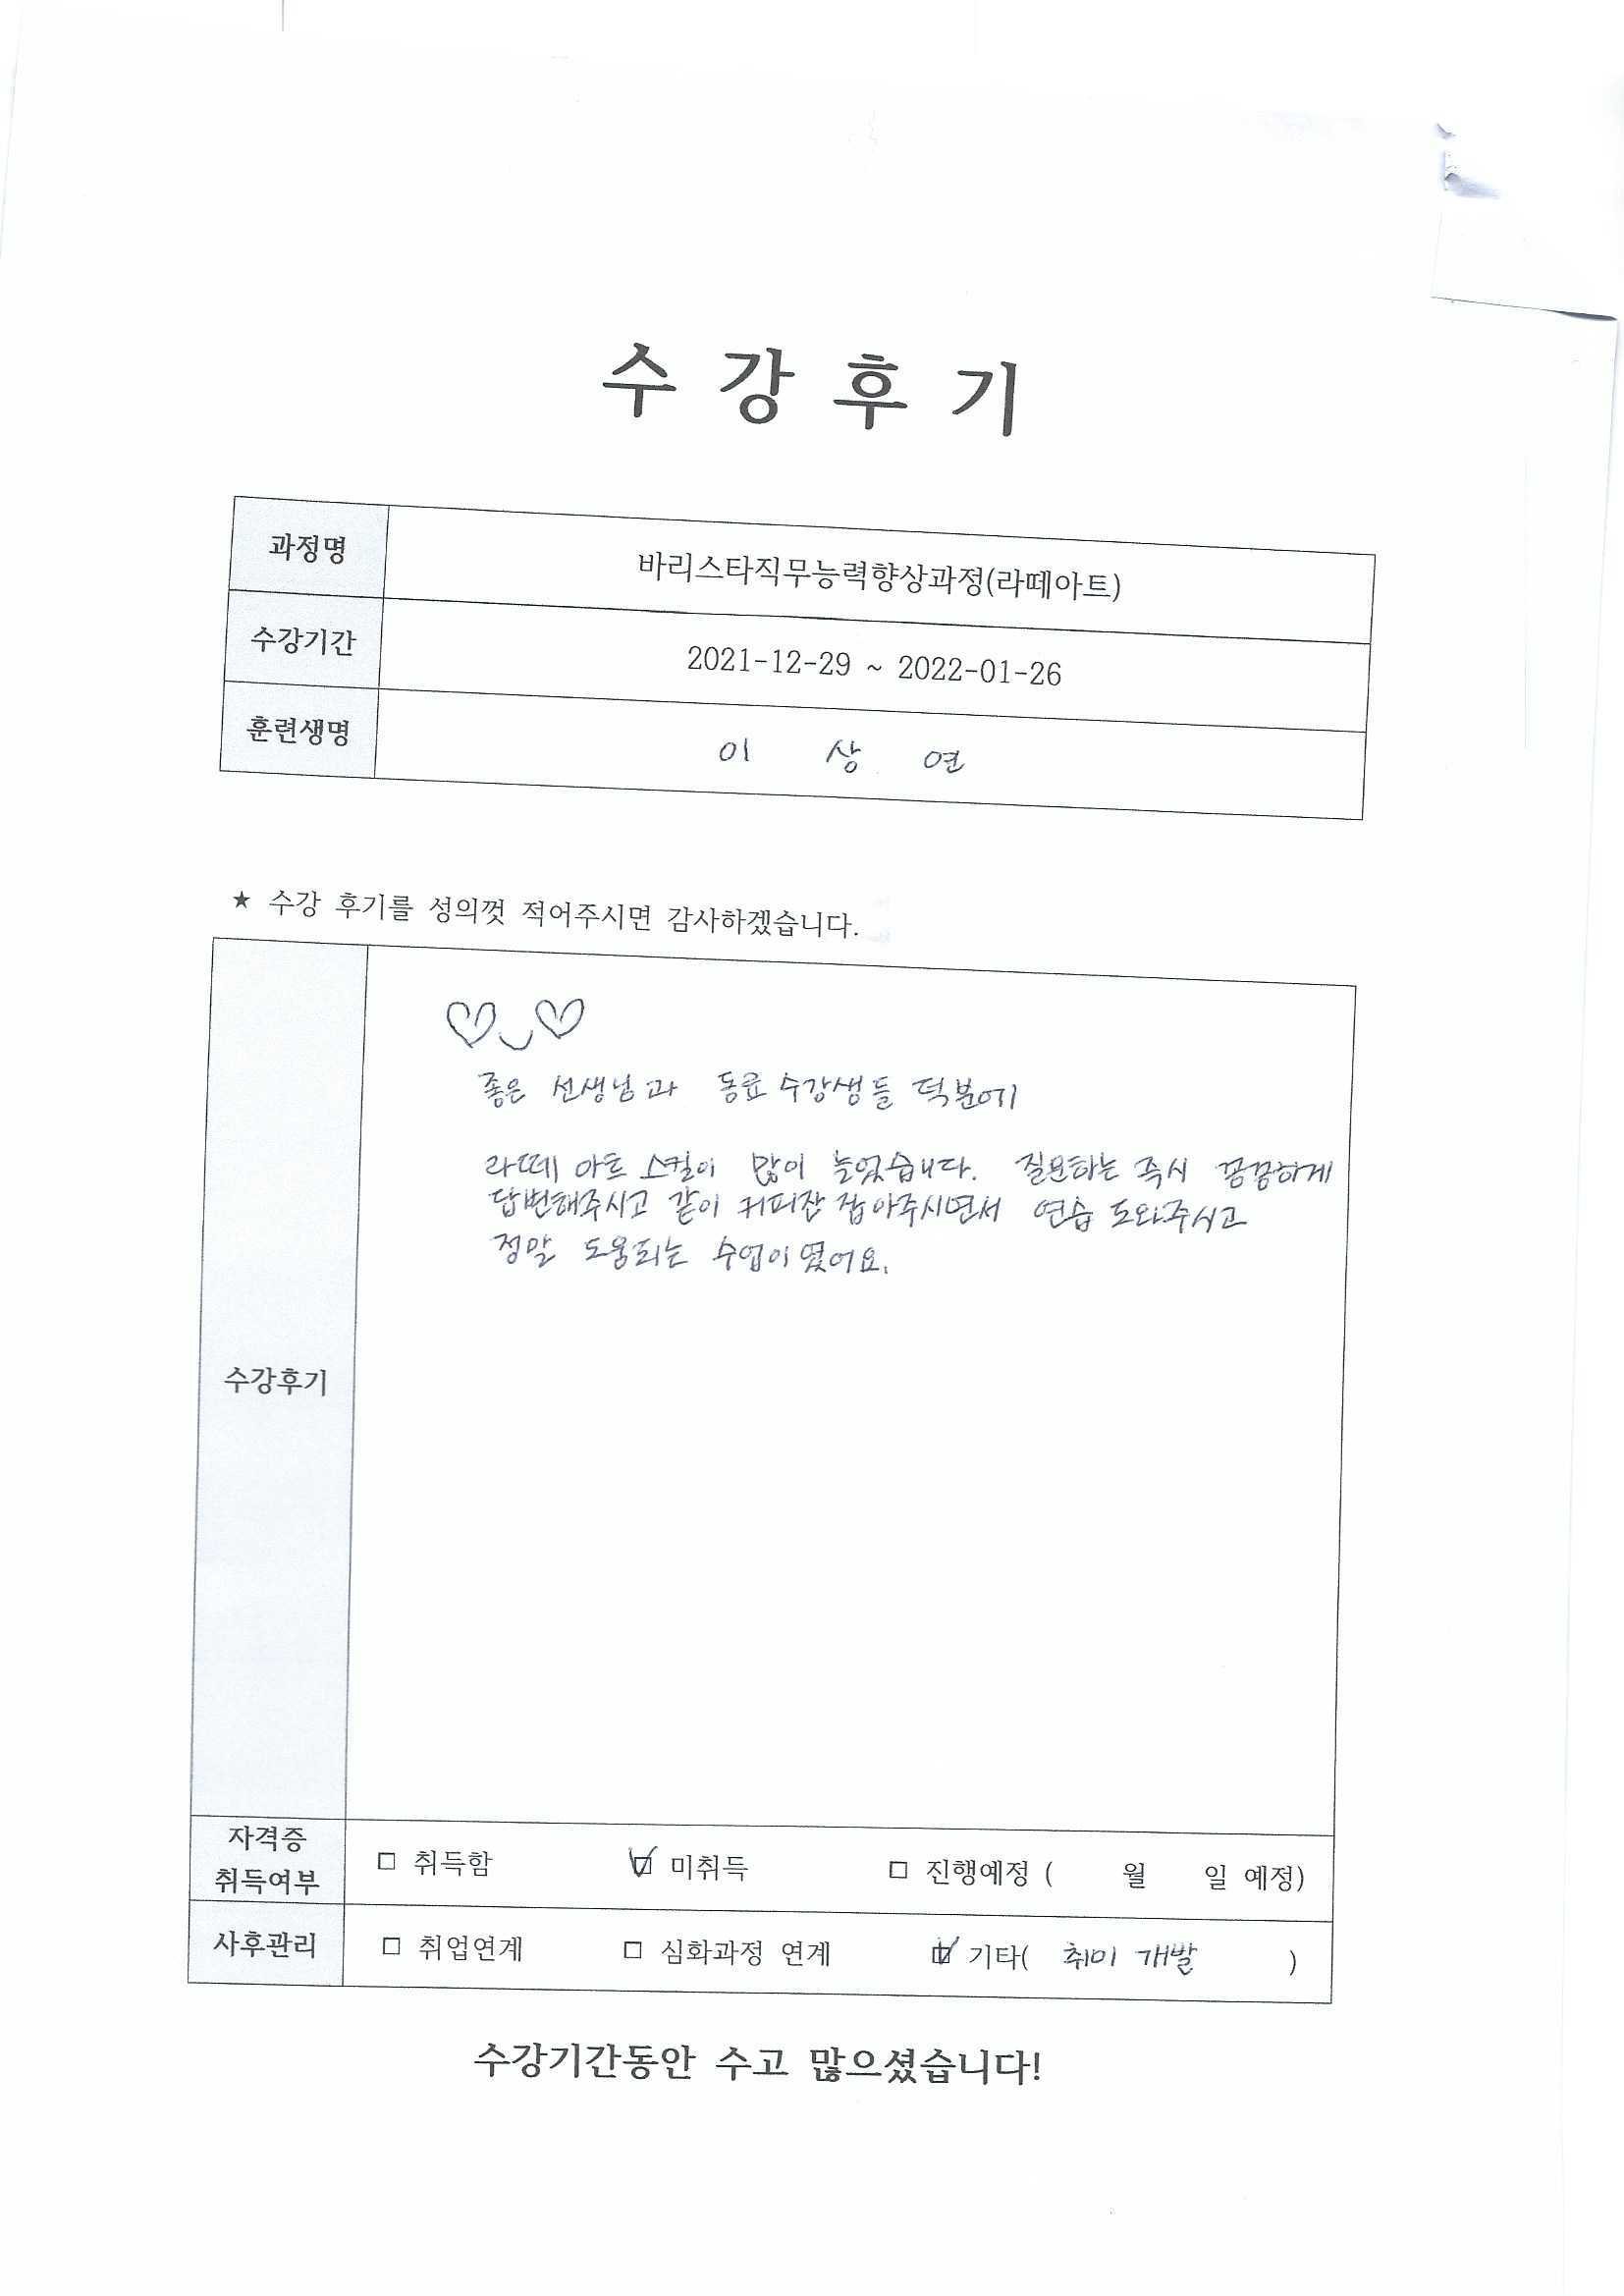 수 강 후 기
과정명 바리스타직무능력향상과정(라떼아트)
수강기간 2021-12-29 ~ 2022-01-26
훈련생명 이 상 연
★ 수강 후기를 성의껏 적어주시면 감사하겠습니다.
좋은 선생님과 동료 수강생들 덕분에
라떼 아트 스킬이 많이 늘었습니다. 질문하는 즉시 꼼꼼하게
답변해주시고 같이 커피잔 잡아주시면서 연습 도와주시고
정말 도움되는 수업이였어요.
수강후기
자격증
취득여부 □ 취득함 ☑ 미취득 □ 진행예정 ( 월 일 예정)
사후관리 □ 취업연계 □ 심화과정 연계 ☑ 기타( 취미 개발 )
수강기간동안 수고 많으셨습니다!